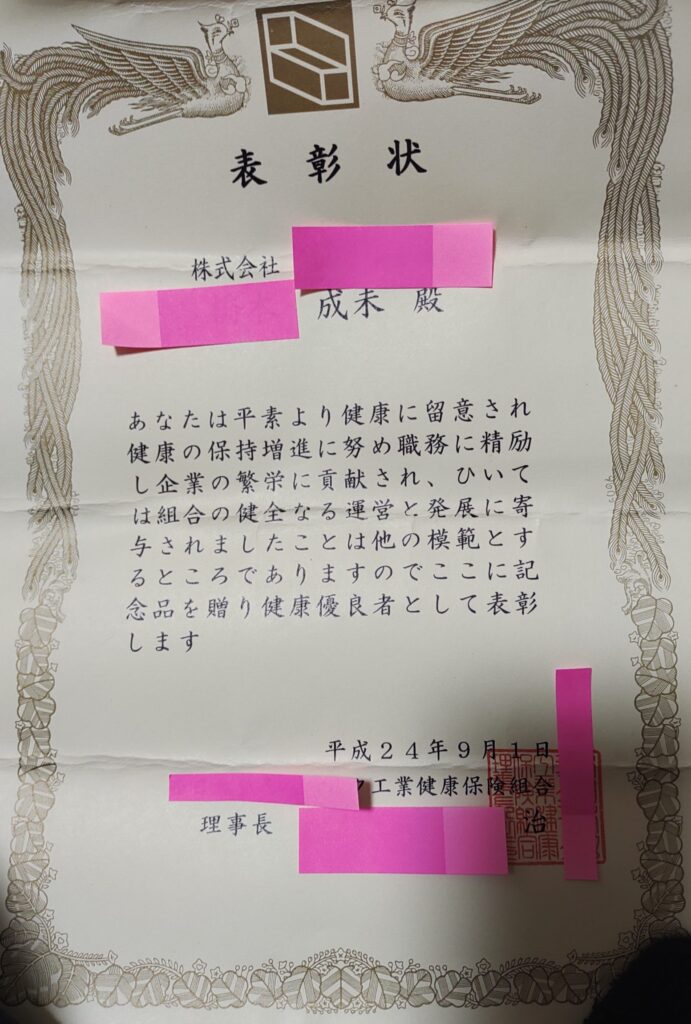 表彰状
株式会社
成未 殿
あなたは平素より健康に留意され
健康の保持増進に努め職務に精励
し企業の繁栄に貢献され、ひいて
は組合の健全なる運営と発展に寄
与されましたことは他の模範とす
るところでありますのでここに記
念品を贈り健康優良者として表彰
します
平成24年9月1日
ク工業健康保険組合
理事長 治